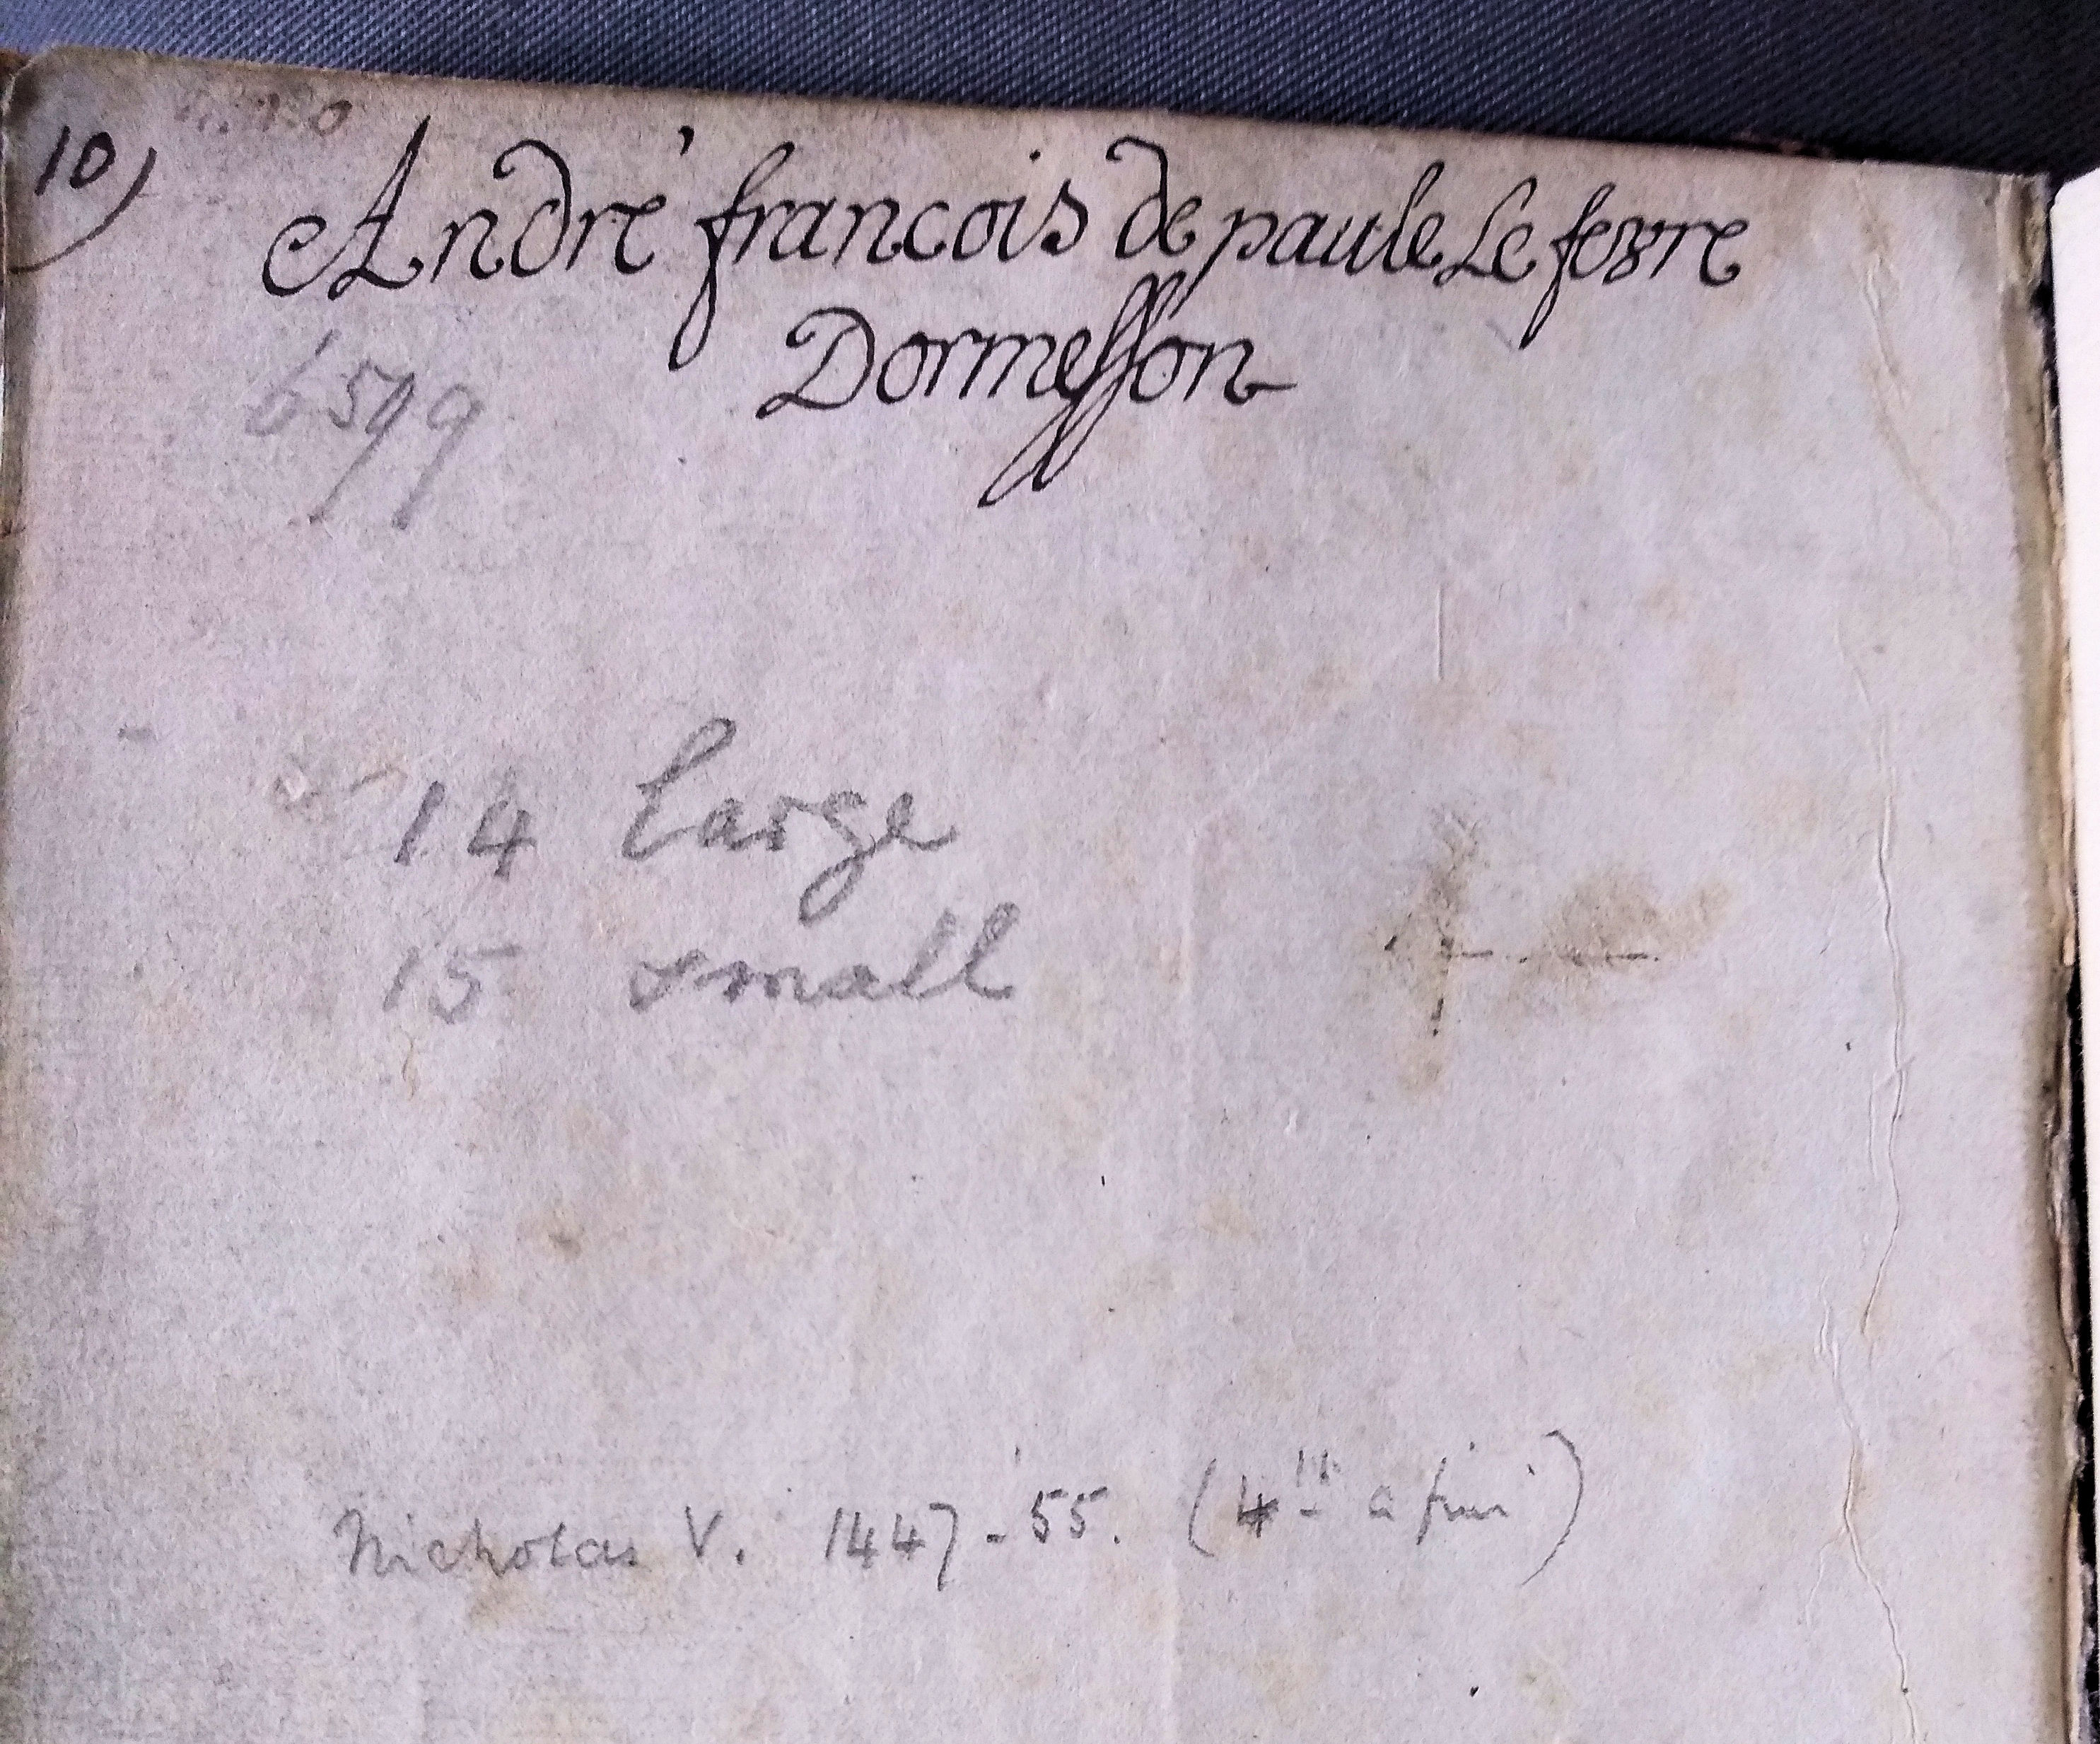 10)
André francois de paule Le fevre
Dormesson
6599
14 large
15 small
Nicholas V. 1447-55. (4